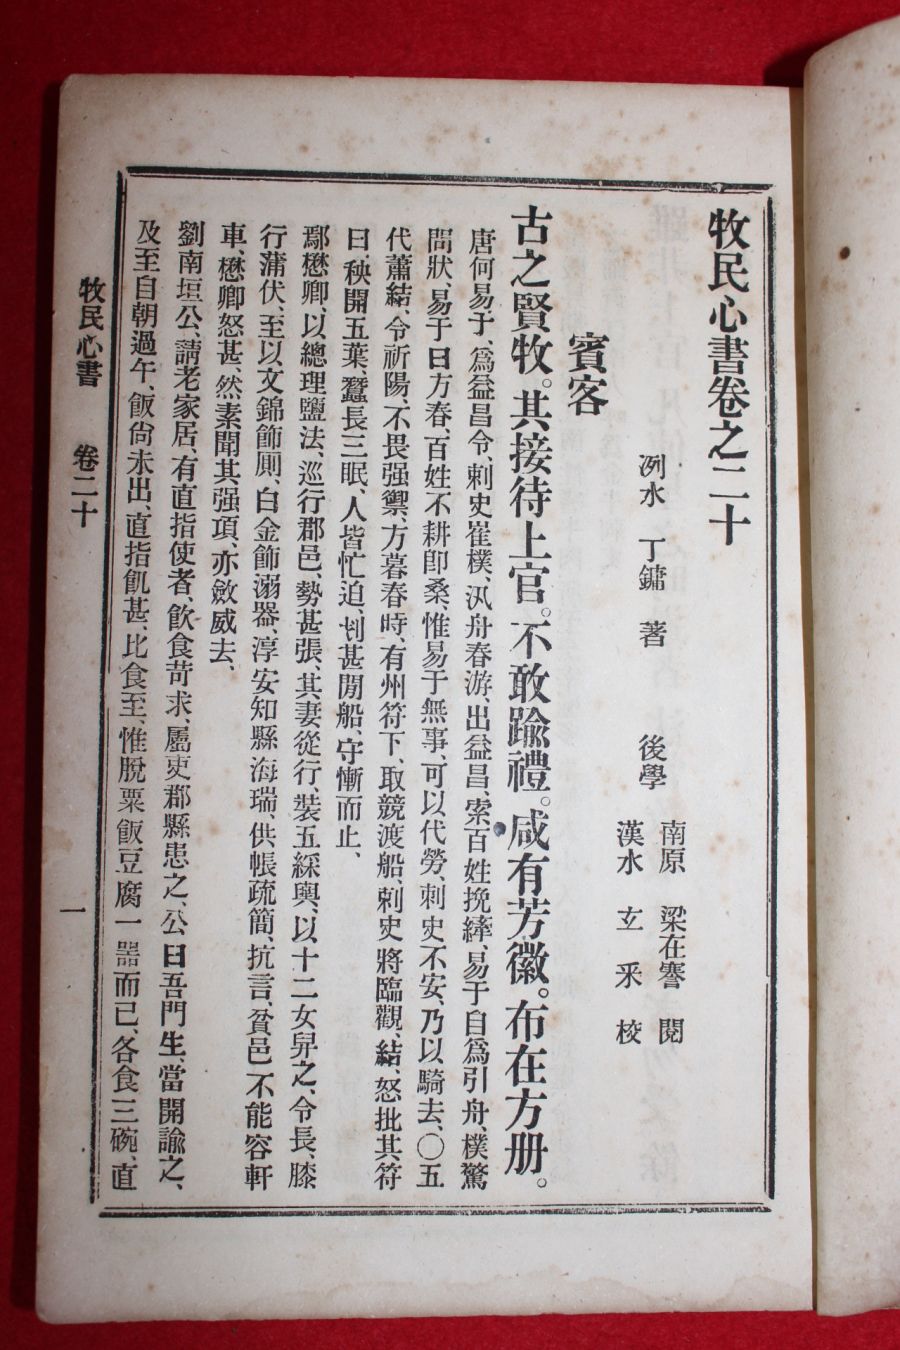 牧民心書卷之二十
洌水　丁鏞　著　　後學
南原　梁在謇　閱
漢水　玄　采　校
賓客
古之賢牧。其接待上官。不敢踰禮。咸有芳徽。布在方册。
唐何易于、爲益昌令、刺史崔樸、汎舟春游、出益昌、索百姓挽䌫、易于自爲引舟、樸驚
問狀、易于曰方春、百姓不耕卽桑、惟易于無事、可以代勞、刺史不安、乃以騎去、〇五
代蕭結、令祈陽、不畏强禦、方暮春時、有州符下、取競渡船、刺史將臨觀、結、怒批其符
曰、秧開五葉、蠶長三眠、人皆忙迫、刬甚閒船、守慚而止、
鄢懋卿、以總理鹽法、巡行郡邑、勢甚張、其妻從行、裝五綵輿、以十二女舁之、令長、膝
行蒲伏、至以文錦飾厠、白金飾溺器、淳安知縣海瑞、供帳疏簡、抗言、貧邑不能容軒
車、懋卿怒甚、然素聞其强項、亦斂威去、
劉南垣公、請老家居、有直指使者、飮食苛求、屬吏郡縣患之、公曰吾門生、當開諭之、
及至自朝過午、飯尙未出、直指飢甚、比食至、惟脫粟飯豆腐一器而已、各食三碗、直
牧民心書　卷二十
一